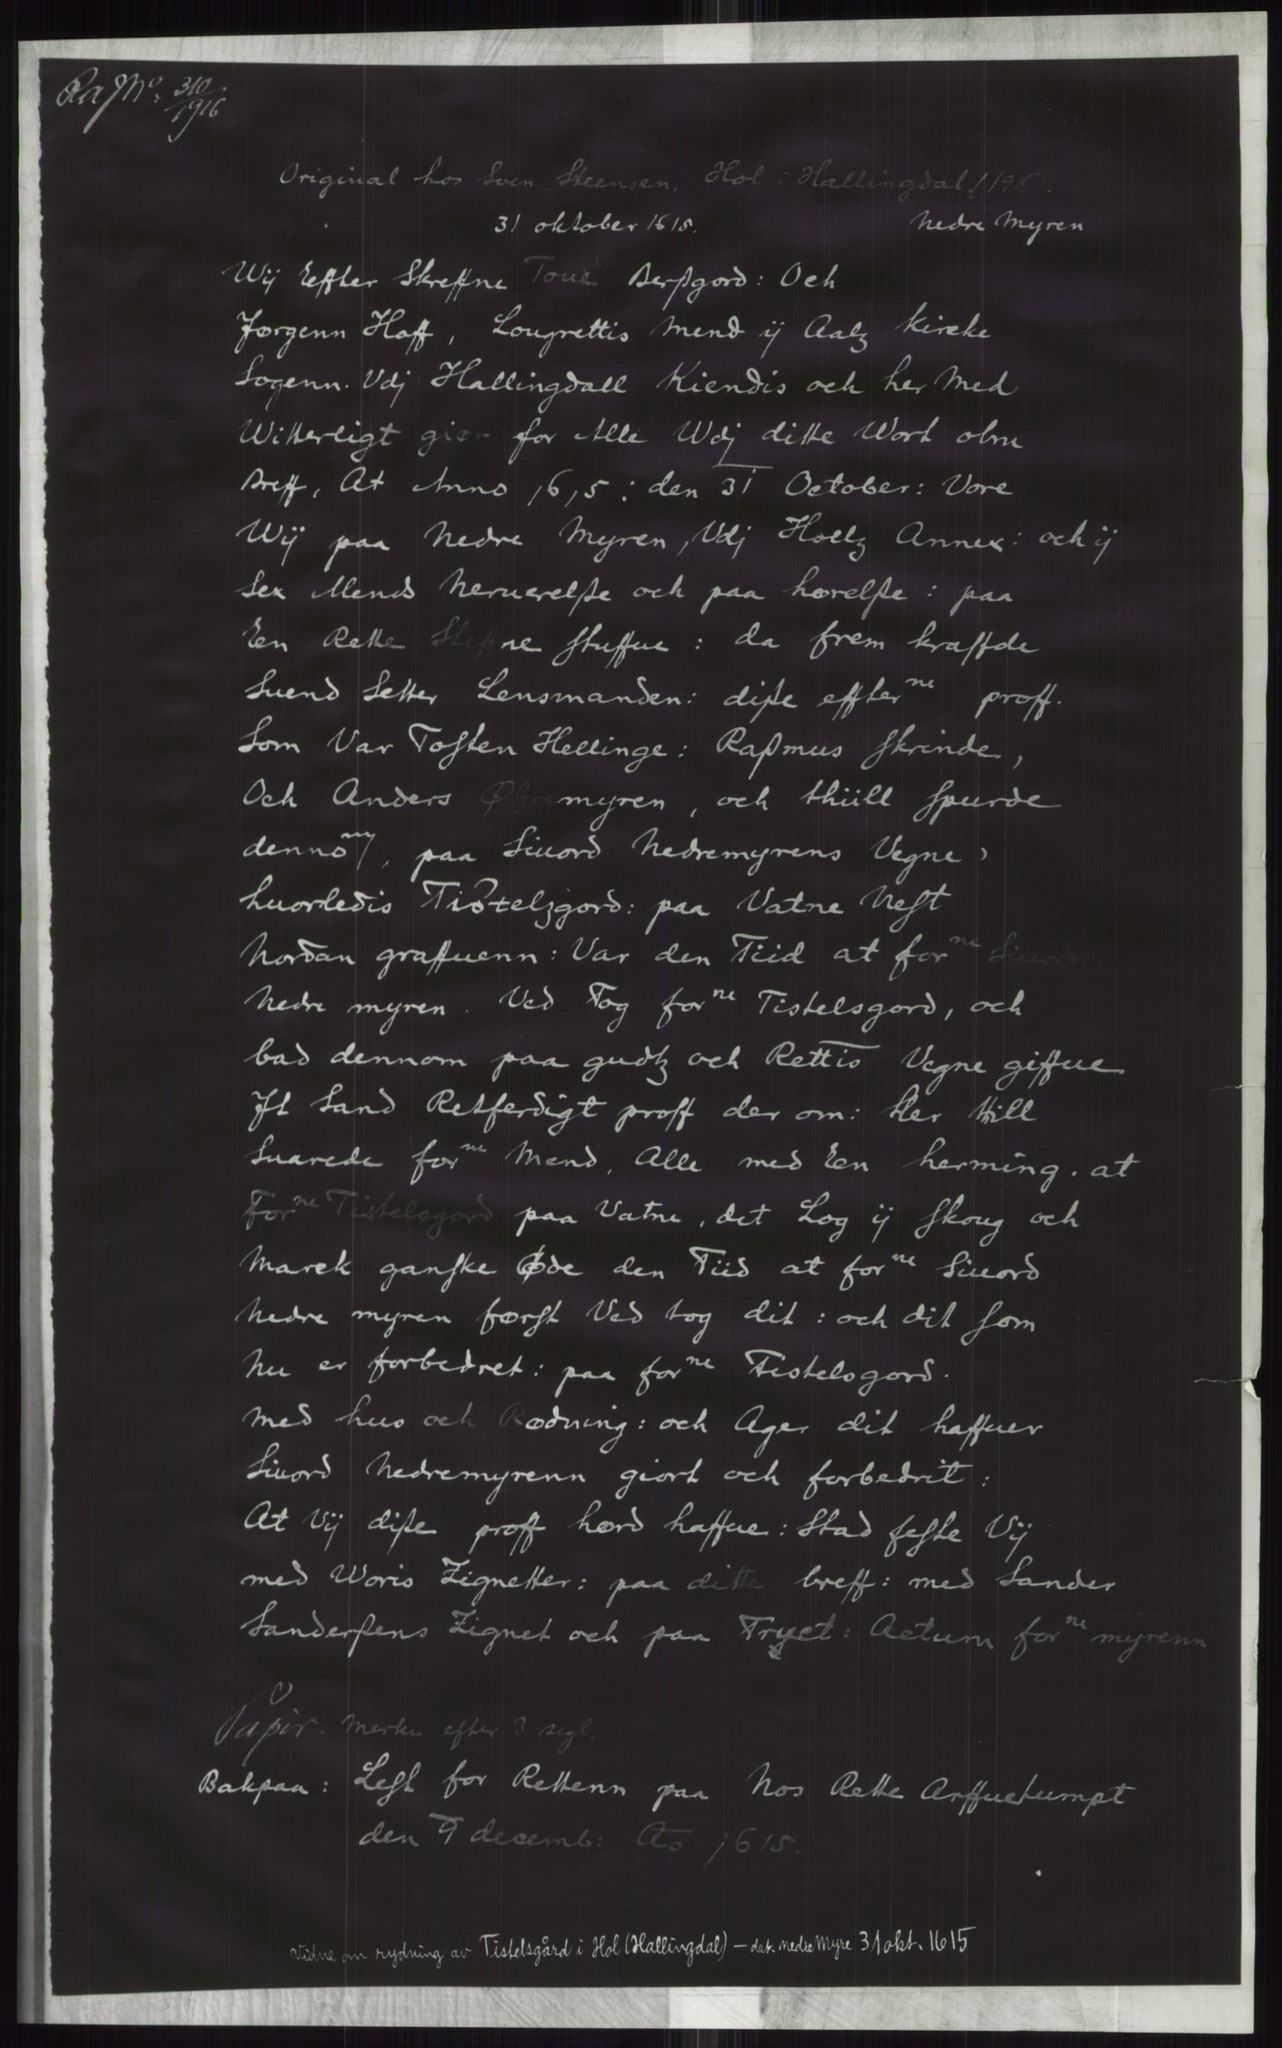 Ra Jno. 310/1916
Original hos Sven Steensen, Hol i Hallingdal (1916).
31 oktober 1615. Nedre Myren
Wij Effter Skreffne Toue Berßgord: Och
Jørgenn Hoff, Lougrettis Mend ij Aalz Kircke
Sogenn. Vdj Hallingdall Kiendis och her Med
Witterligt giør for Alle Wdj ditte Wort obne
Breff, At Anno ,6,5: den 31 October: Vore
Wij paa Nedre Myren, Vdj Hoelz Annex: och ij
Sex Mends Neruerelße och paa hørelße: paa
En Rette Steffne stuffue: da frem kraffde
Suend Setter Lensmanden: diße effterne proff.
Som Var Tosten Hellinge: Raßmus Skrinde,
Och Anders Øfremyren, och thiill spurde
dennom, paa Siuord Nedremyrens Vegne,
huorledis Tistelzgord: paa Vatne Nest
Nordan graffuenn: Var den Tiid at forne Siuord
Nedre myren. Ved Tog forne Tistelsgord, och
bad dennom paa gudtz och Rettis Vegne giffue
Jt Sand Retferdigt proff der om: her till
Suarede forne Mend, Alle med En herming. at
Forne Tistelsgord paa Vatne, det Log ij skoug och
Marck ganske Øde den Tiid at forne Siuord
Nedre myren først Ved tog dit: och dit som
Nu er forbedret: paa forne Tistelsgord.
Med hus och Rødning: och Ager dit haffuer
Siuord Nedremyrenn giort och forbedrit:
At Vij diße proff hord haffue: Stad feste Vij
med Woris Zignetter: paa ditte breff: med Sander
Sanderßens Zignet och paa Tryct: Actum forne myrenn
Papir. Merke efter 3 segl.
Bakpaa: Lest for Rettenn paa Nos Rette Arffuetumpt
den 9 decemb: Ao ,615.
Vidne om rydning av Tistelsgård i Hol (Hallingdal) – dat. Nedre Myre 31 okt. 1615